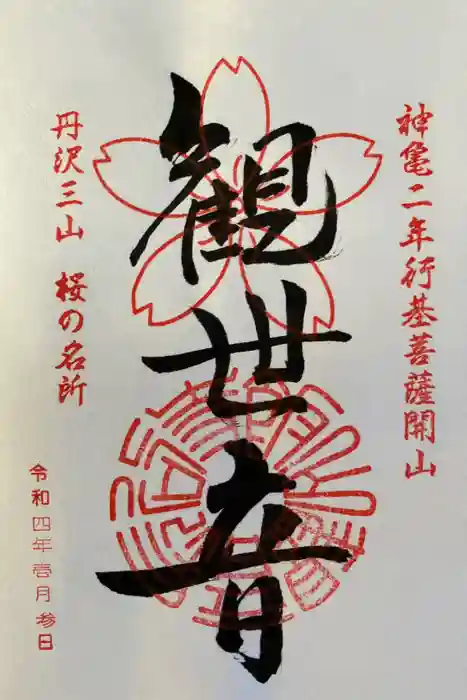 神亀二年行基菩薩開山
観世音
丹沢三山 桜の名所
令和四年壱月参日